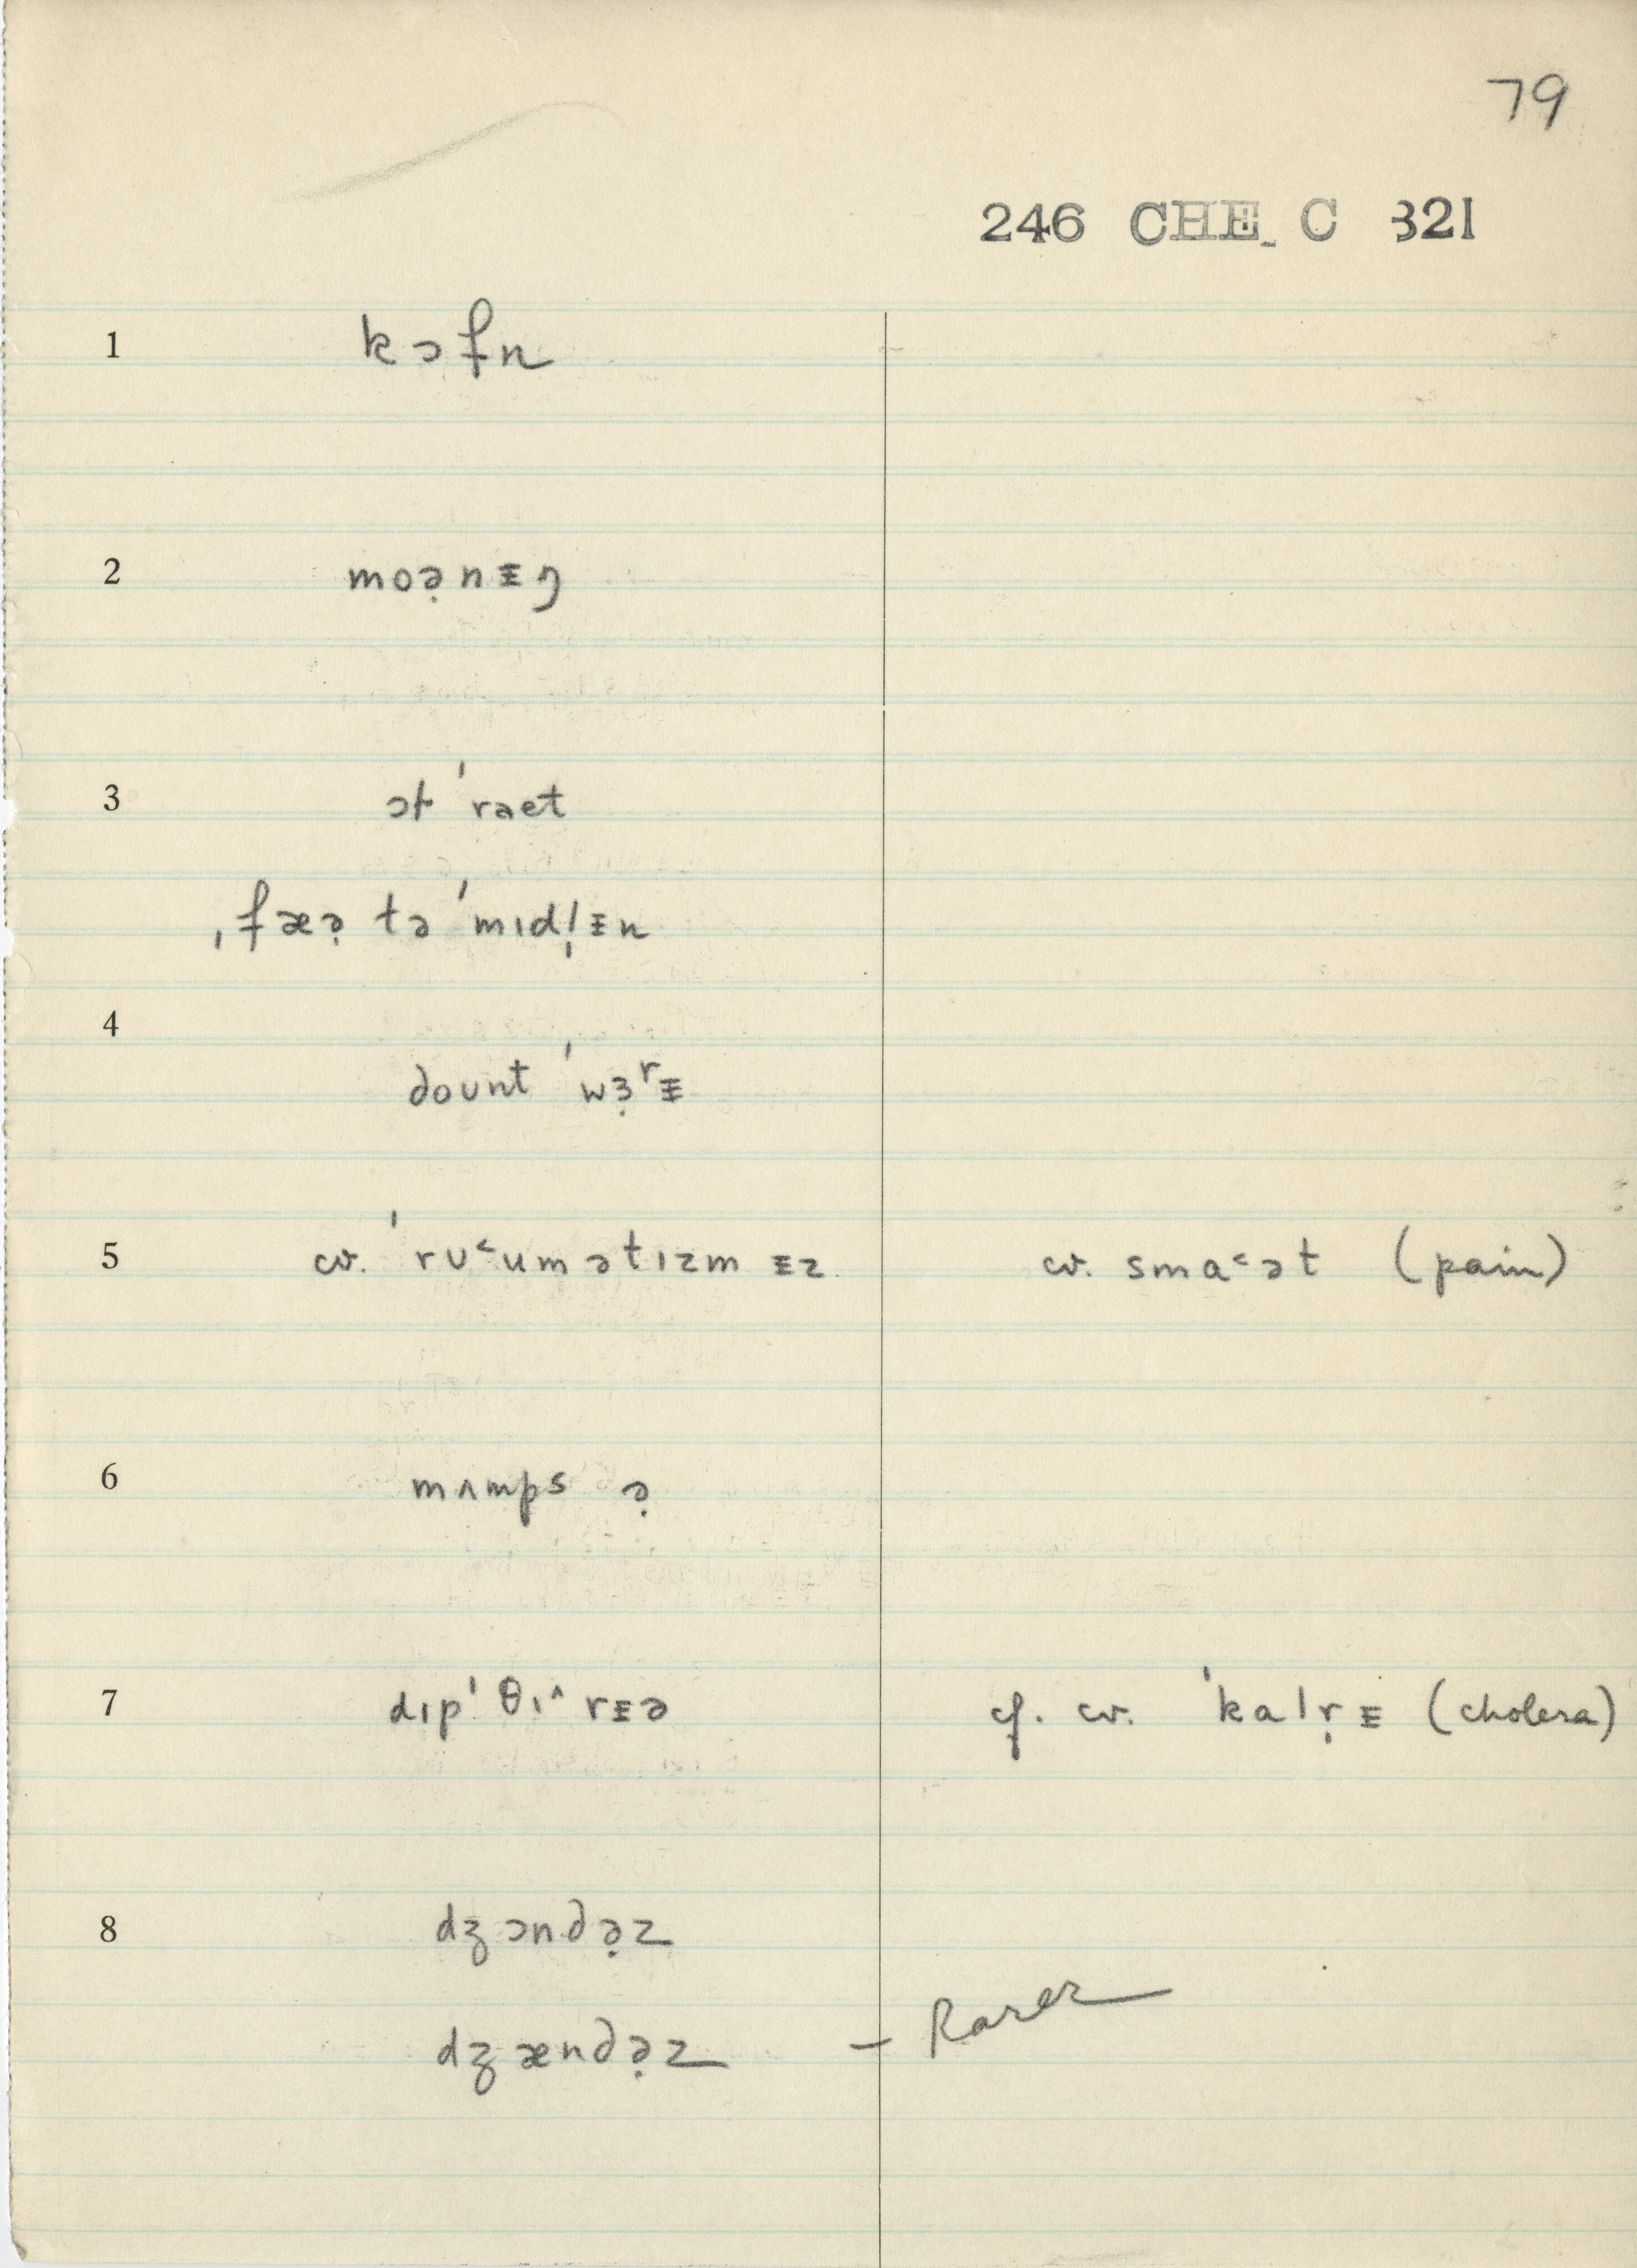 79
246 CHE C 321
1 kɔfn
2 moə̣nᵻŋ
3 ɔɫ ˈraet
ˌfæə̣ tə ˈmɪdl̩ᵻn
4
dount ˈwɜ̣ʳᵻ
5 cv. ˈrʊ˂umətɪzmᵻz cv. smɑ˂ət (pain)
6 mʌmps ə̣
7 dɪpˈθɪ˄rᵻə cf. cv. ˈkalṛᵻ (cholera)
8 dʒɔndə̣z
dʒændə̣z – Rarer